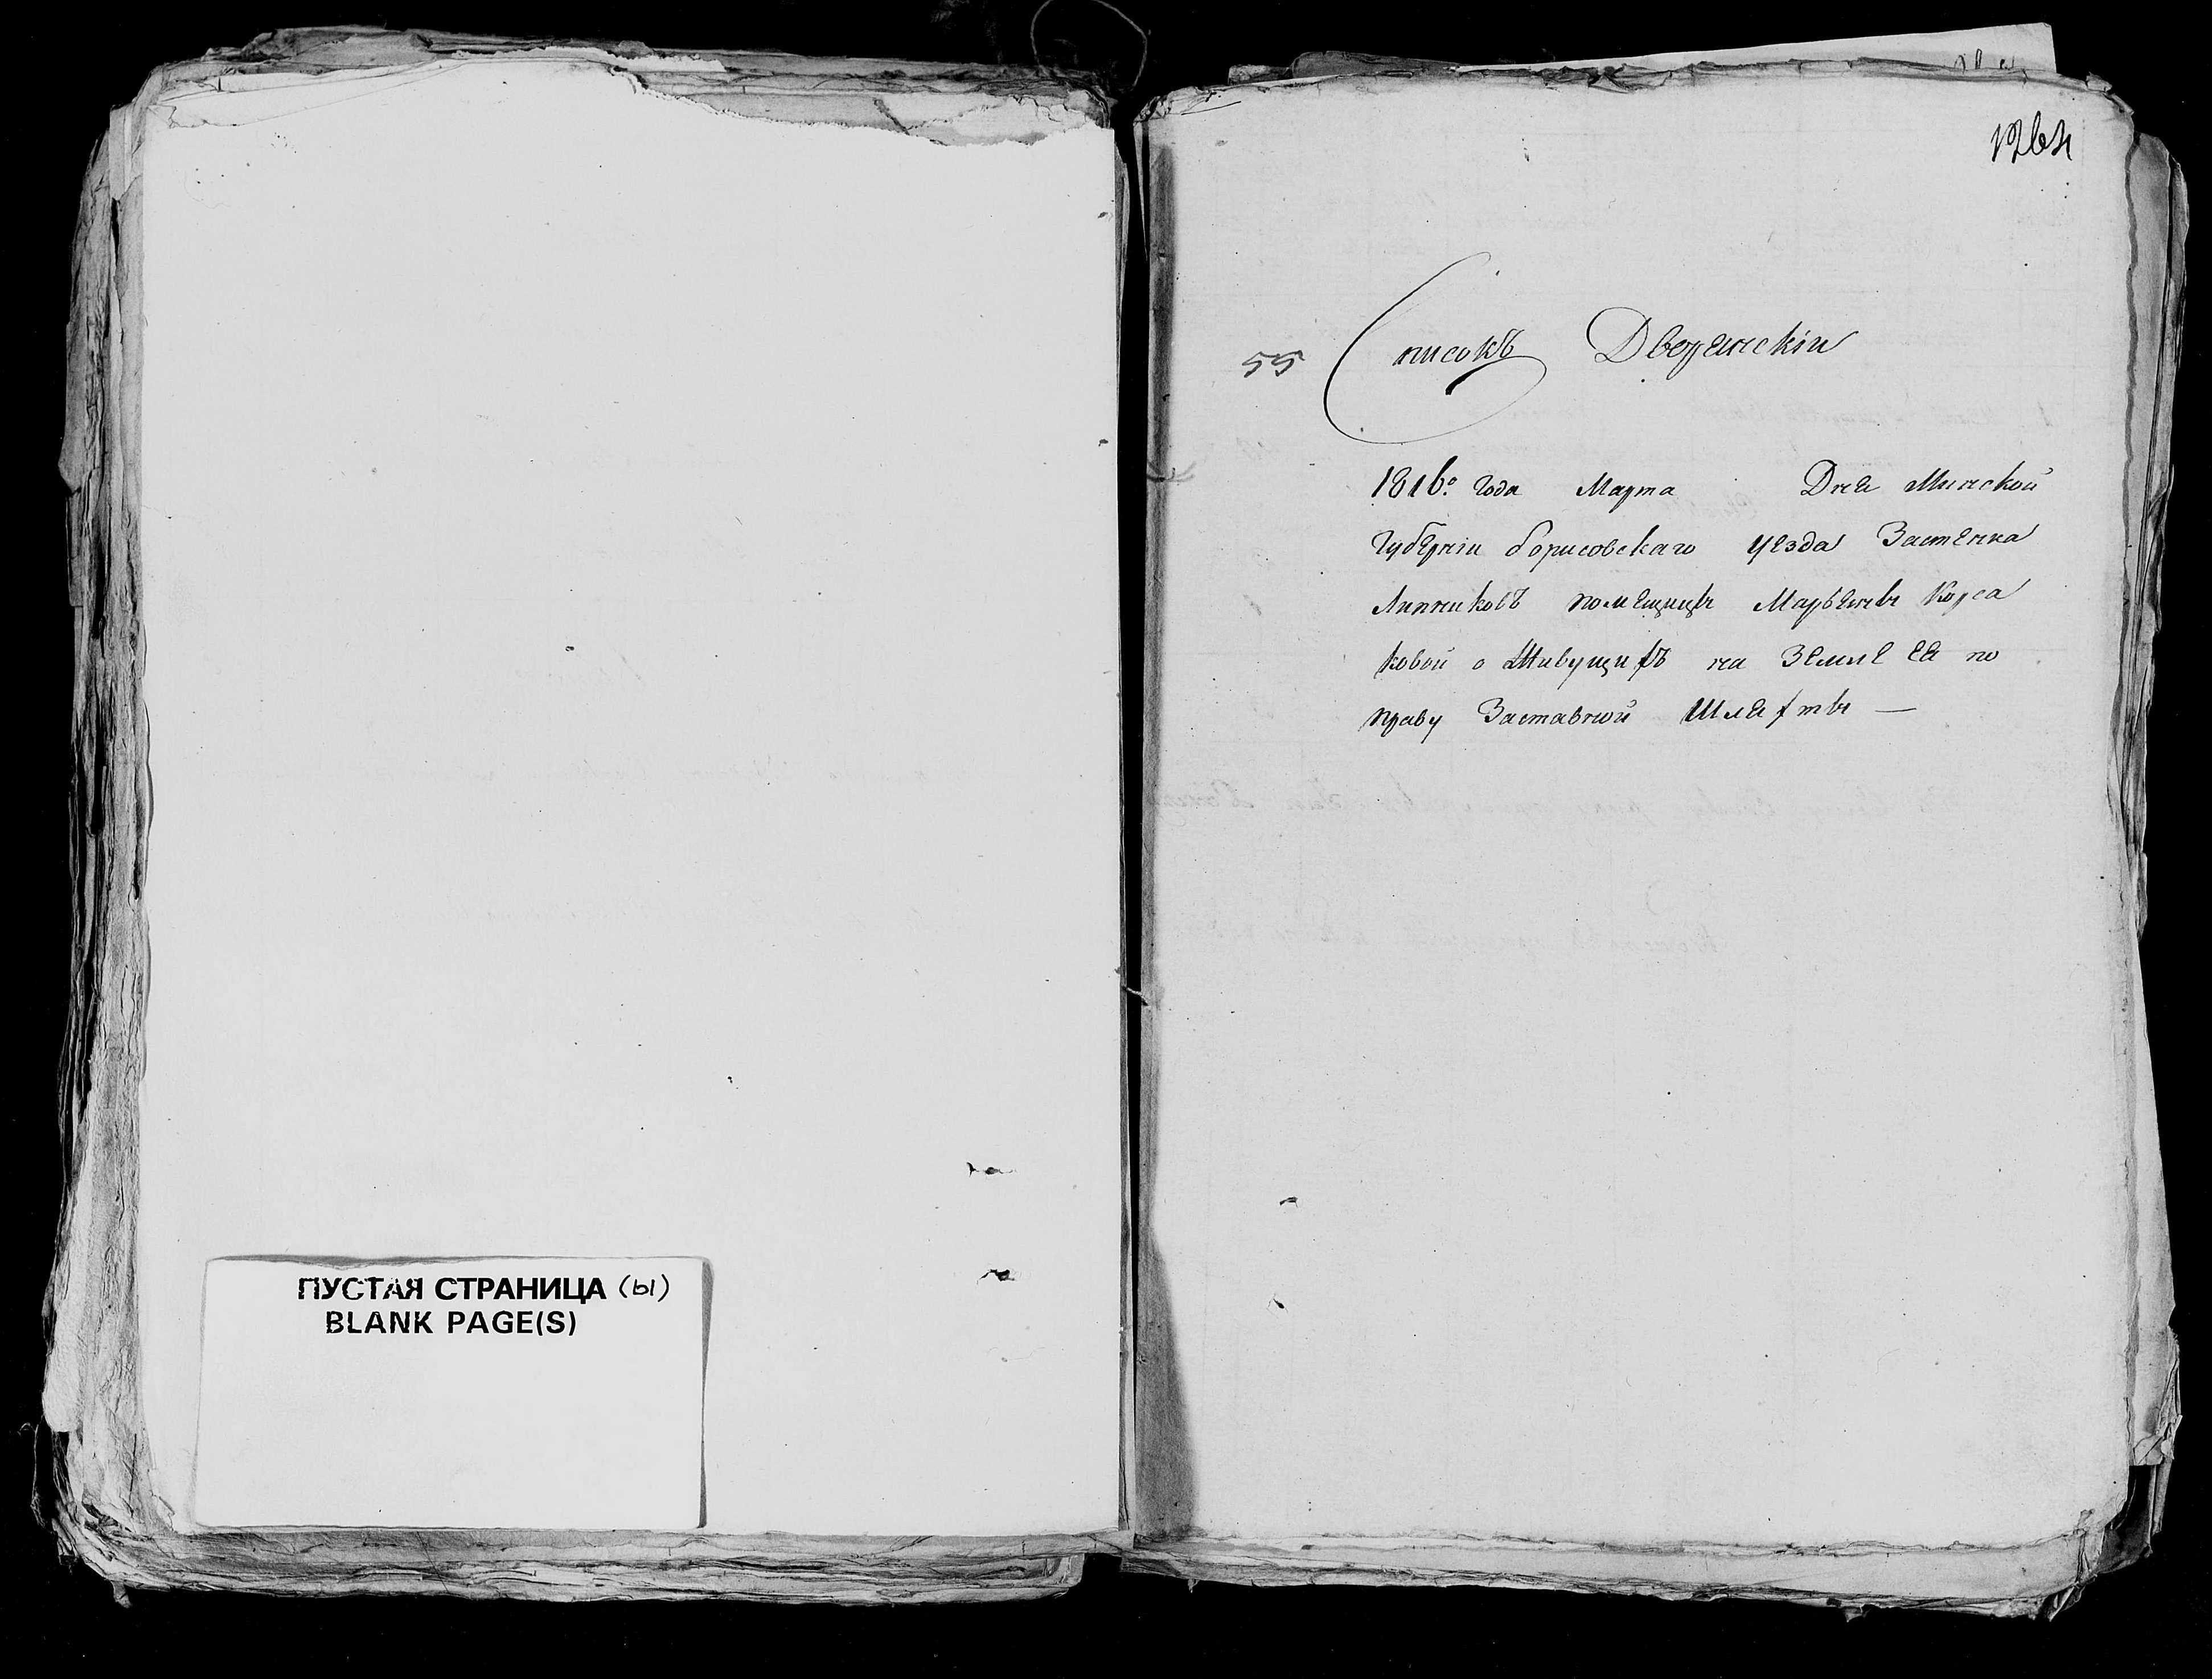 ПУСТАЯ СТРАНИЦА (ы)
BLANK PAGE(S)
1264
55 Списокъ Дворянскiи
1816го Года Марта Дня Минской
Губернiи борисовскаго уезда Застенка
Липниковъ помещицы Марьяны Корса
ковой о Живущихъ на Земле ея по
праву Заставной Шляхты —